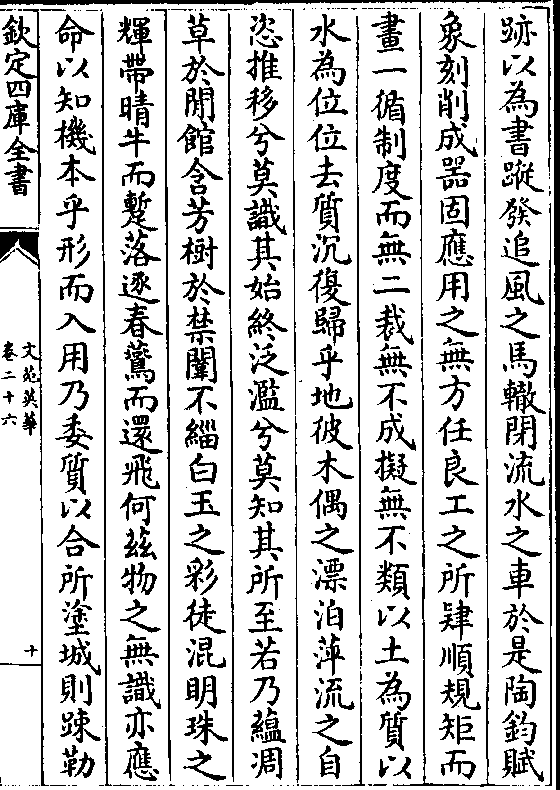 跡以為書蹤發追風之馬轍閉流水之車於是陶鈞賦
象刻削成器固應用之無方任良工之所肄順規矩而
畫一循制度而無二裁無不成擬無不類以土為質以
水為位位去質沉復歸乎地彼木偶之漂泊萍流之自
恣推移兮莫識其始終泛濫兮莫知其所至若乃蘊凋
草於閒館含芳樹於禁闈不緇白玉之彩徒混明珠之
輝帶晴牛而蹔落逐春鶯而還飛何兹物之無識亦應
命以知機本乎形而入用乃委質以合所塗城則踈勒
欽定四庫全書
文苑英華
卷二十六
十